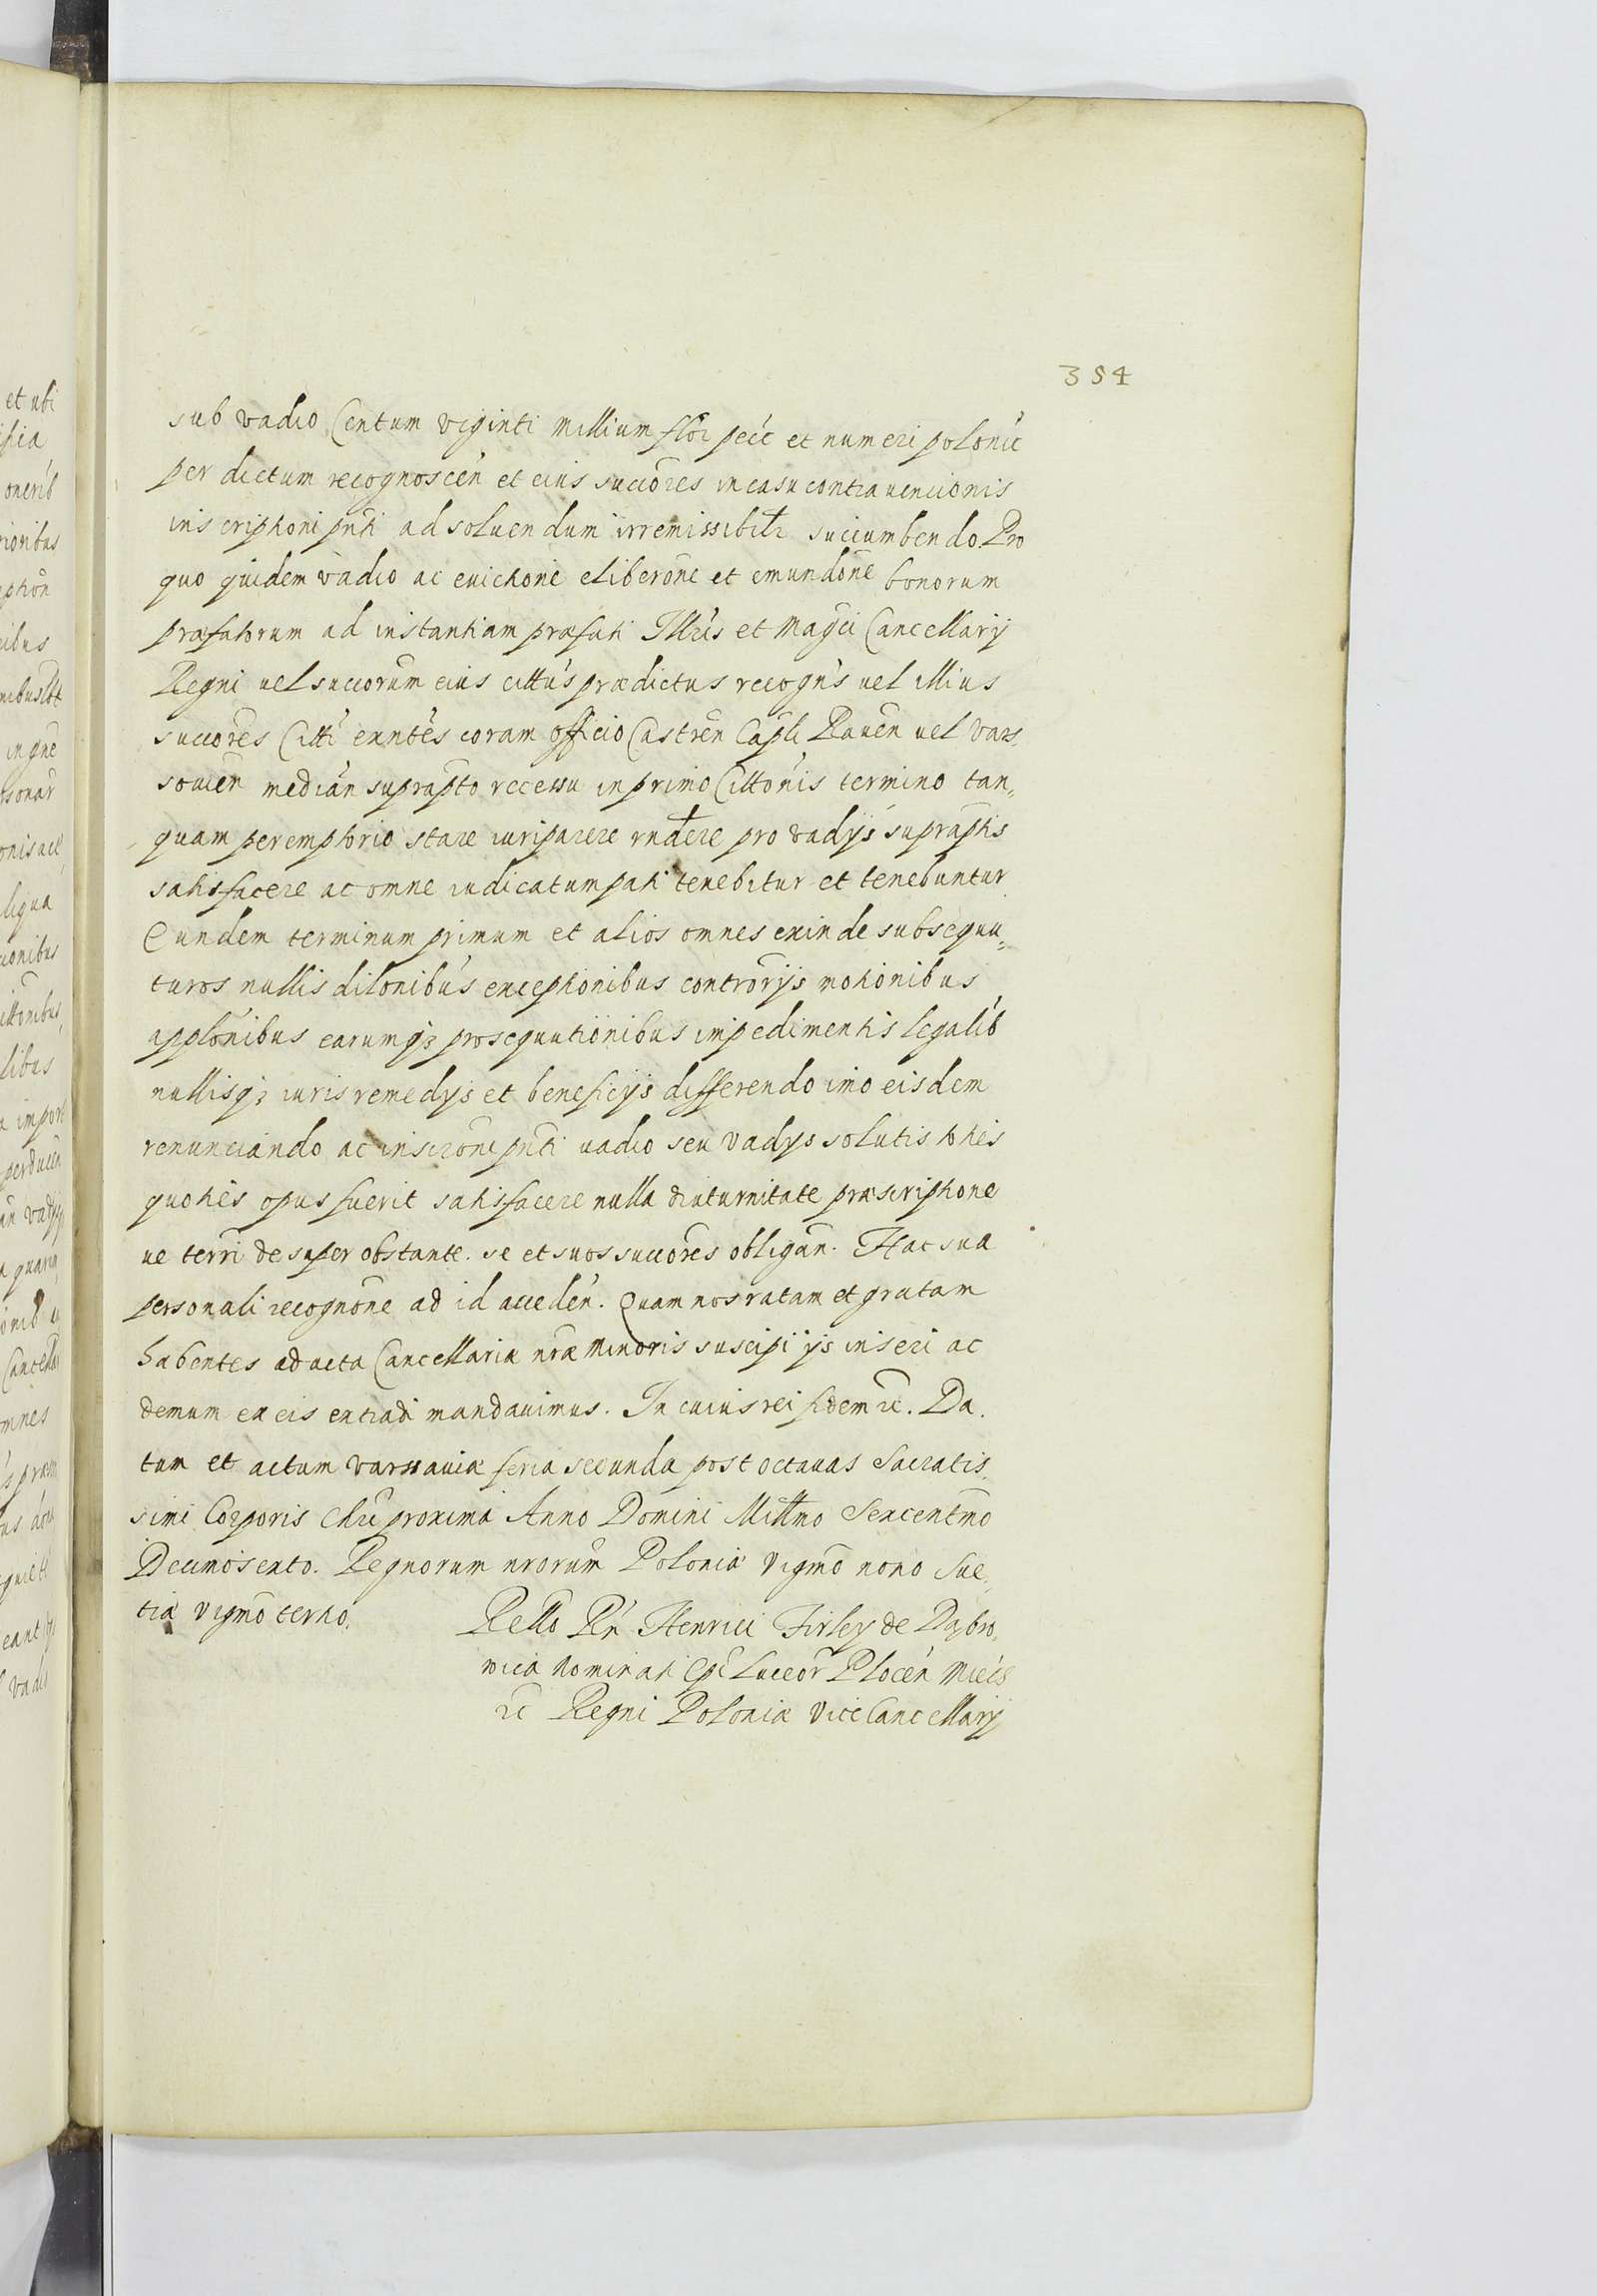 354
sub vadio Centum viginti Millium flor pecc et numeri polonic
per dictum recognoscen et eius succores in casu contrauencionis
inscriptioni pnti ad soluendum irremissibilr succumbendo. Pro
quo quidem vadio ac euictione eliberone et emundone bonorum
præfatorum ad instantiam præfati Illris et Magci Cancellarij
Regni uel succorum eius cittus prædictus recogns uel illius
succores Citti exntes coram officio Castren Capli Rauen uel Vars,
souien median suprapto recessu in primo Cittonis termino tan,
quam peremptorio stare iuriparere rndere pro vadijs supraptis
satisfacere ac omne iudicatum pati tenebitur et tenebuntur
Eundem terminum primum et alios omnes exinde subsequu,
turos nullis dilonibus exceptionibus controrijs motionibus
applonibus earumq3 prosequutionibus impedimentis legalib
nullisq3 iuris remedys et beneficijs differendo imo eisdem
renunciando ac inscrõni pnti uadio seu vadys solutis toties
quoties opus fuerit satisfacere nulla diuturnitate præscriptione
ue terri desuper obstante. se et suos succores obligan. Hac sua
personali recognone ad id acceden. Quam nos ratam et gratam
habentes ad acta Cancellariæ nræ Minoris suscipi ijs inseri ac
demum ex eis extradi mandauimus. In cuius rei fidem rc. Da,
tum et actum Varssauiæ feria secunda post octauas Sacratis,
simi Corporis Chri proxima Anno Domini Millmo Sexcentmo
Decimosexto. Regnorum nrorum Poloniæ vigmo nono Sue,
tiæ vigmo tertio.
Rello Rn Henrici Firley de Dąbro,
wica Nominati Epi Luceor Plocen Miecs
rc Regni Poloniæ ViceCancellarij